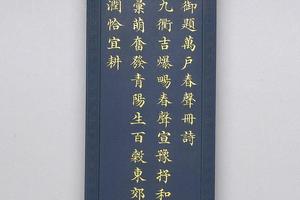 御題萬戶春聲冊詩
九衢吉爆暢春聲宣豫抒和
彙萌奮發青陽生百穀東郊
潤恰宜耕